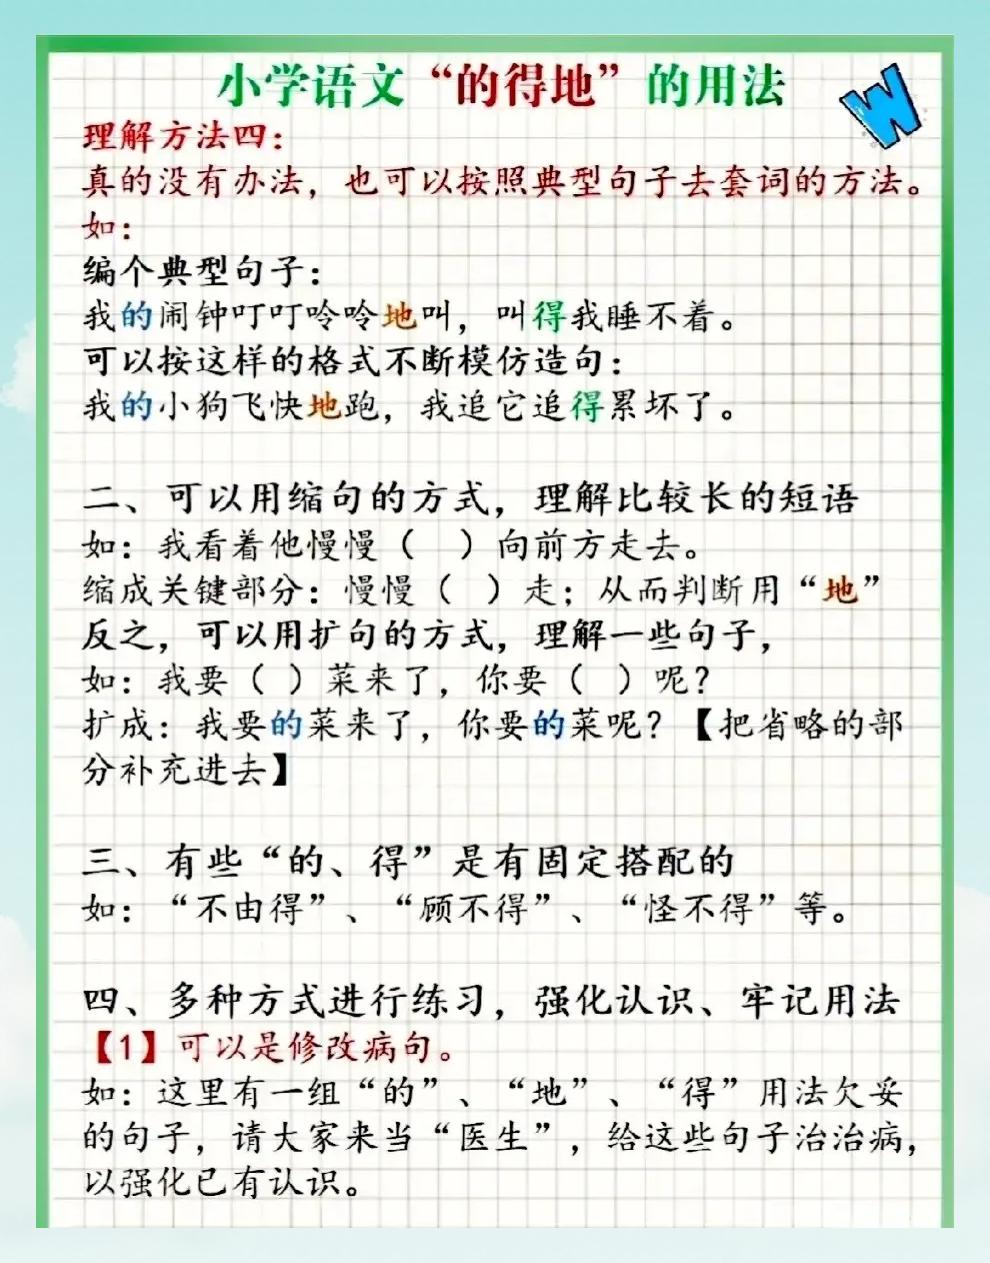 小学语文“的得地”的用法
W
理解方法四：
真的没有办法，也可以按照典型句子去套词的方法。
如：
编个典型句子：
我的闹钟叮叮呤呤地叫，叫得我睡不着。
可以按这样的格式不断模仿造句：
我的小狗飞快地跑，我追它追得累坏了。
二、可以用缩句的方式，理解比较长的短语
如：我看着他慢慢（ ）向前方走去。
缩成关键部分：慢慢（ ）走；从而判断用“地”
反之，可以用扩句的方式，理解一些句子，
如：我要（ ）菜来了，你要（ ）呢？
扩成：我要的菜来了，你要的菜呢？【把省略的部
分补充进去】
三、有些“的、得”是有固定搭配的
如：“不由得”、“顾不得”、“怪不得”等。
四、多种方式进行练习，强化认识、牢记用法
【1】可以是修改病句。
如：这里有一组“的”、“地”、“得”用法欠妥
的句子，请大家来当“医生”，给这些句子治治病，
以强化已有认识。